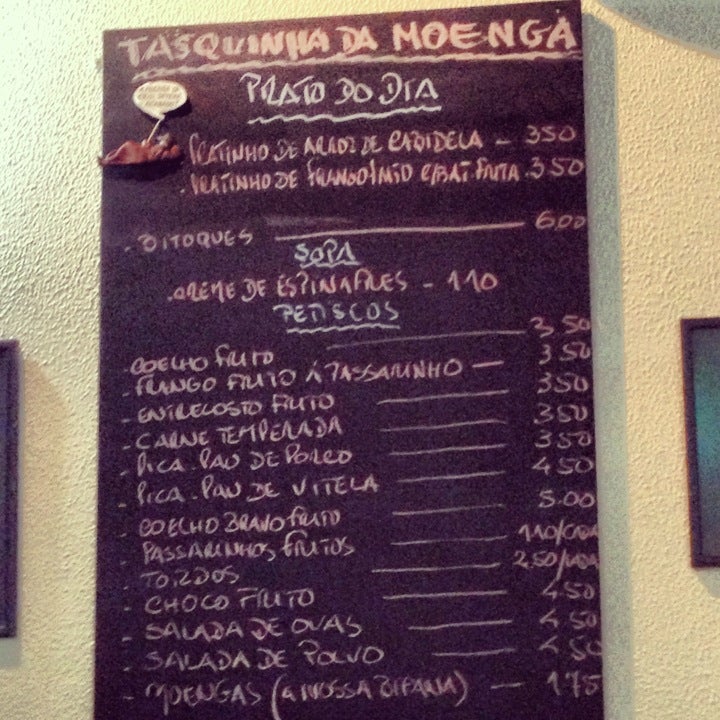 TASQUINHA DA MOENGA
PRATO DO DIA
PRATINHO DE ARROZ DE CABIDELA - 350
. PRATINHO DE FRANGO FRITO C/BAT FRITA. 350
. BITOQUES 600
SOPA
. CREME DE ESPINAFRES - 110
PETISCOS
. COELHO FRITO 350
- FRANGO FRITO À PASSARINHO - 350
- ENTRECOSTO FRITO 350
- CARNE TEMPERADA 350
- PICA. PAU DE PORCO 350
- PICA. PAU DE VITELA 450
- COELHO BRAVO FRITO 5.00
- PASSARINHOS FRITOS 110/CADA
- TORDOS 250/CADA
- CHOCO FRITO 450
- SALADA DE OVAS 450
- SALADA DE POLVO 450
- MOENGAS (A NOSSA BIFANA) - 175